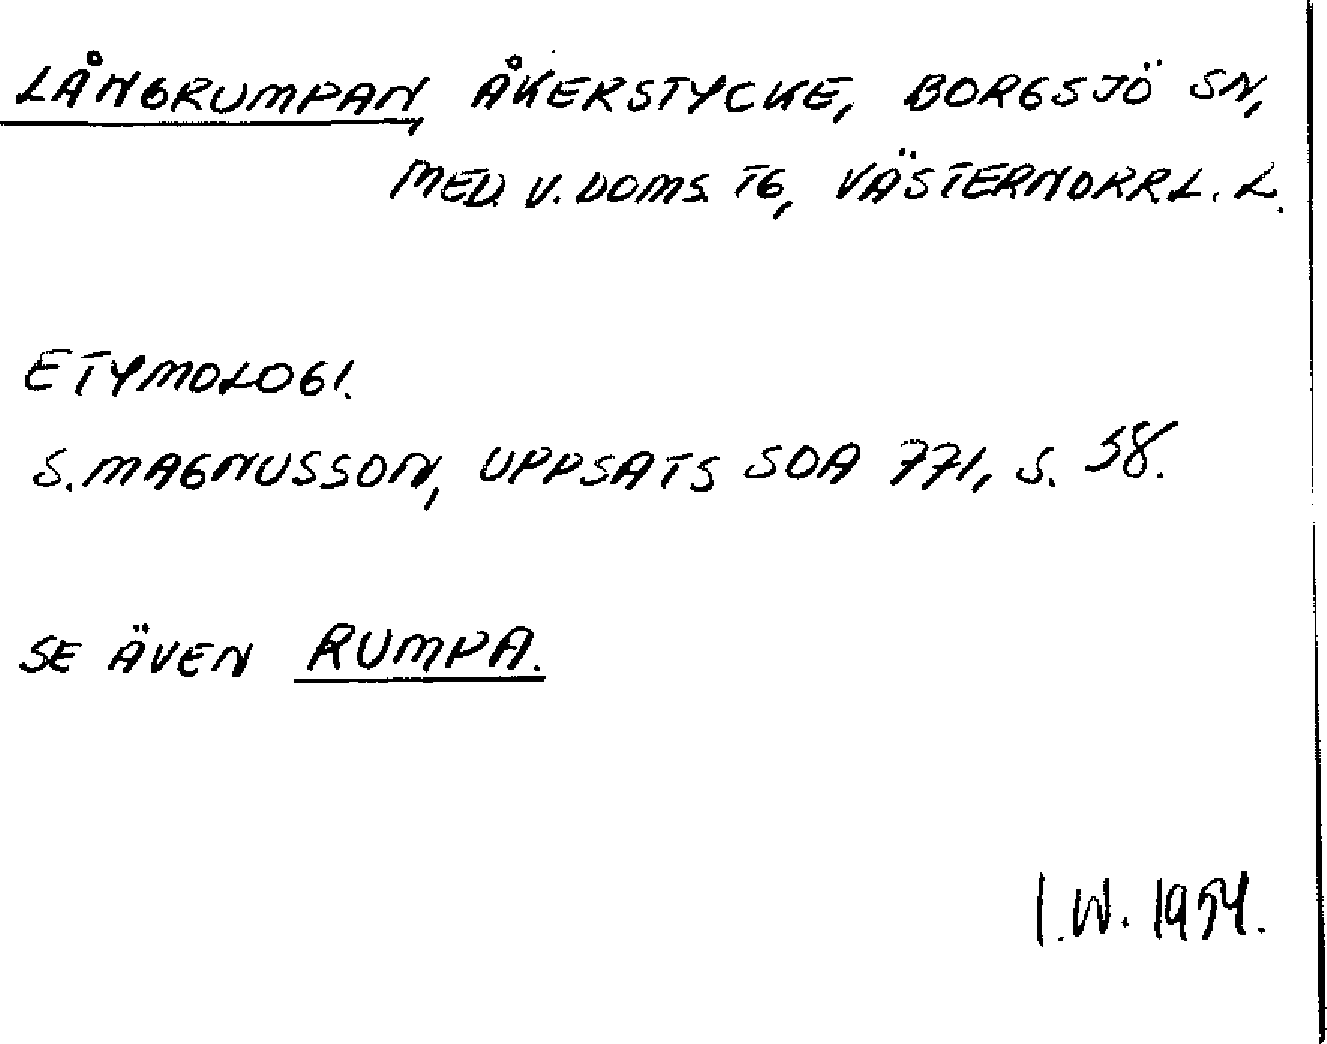 LÅNGRUMPAN, ÅKERSTYCKE, BORGSJÖ SN,
MED. V. DOMS. TG, VÄSTERNORRL. L.
ETYMOLOGI.
S. MAGNUSSON, UPPSATS SOA 771, S. 38.
SE ÄVEN RUMPA.
I.W. 1954.